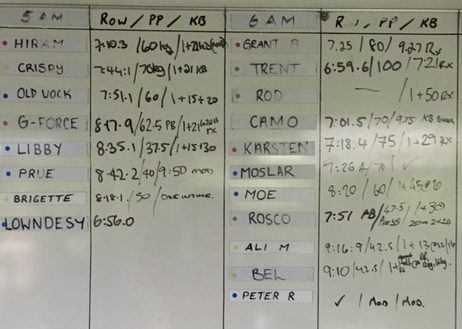 5 AM ROW / PP / KB
HIRAM 7:10.3 / 60kg
CRISPY 7:44.1 / 70kg / 1+21 KB
OLD JOCK 7:51.1 / 60 / 1+15+20
G-FORCE 8:17.9 / 62.5 PB
LIBBY 8:35.1 / 37.5 / 1+15+30
PRUE 8:42.2 / 40 / 9:50 MOD
BRIGETTE 8:18.1 / 50
LOWNDESY 6:56.0
6 AM / PP / KB
GRANT B 7.25 / 80 / 9.27 Rx
TRENT 6:59.6 / 100 / 7:21 RX
ROD — / 1+50 RX
CAMO 7:01.5 / 70 / KB
KARSTEN 7:18.4 / 75 / 1+29 RX
MOSLAR 70 / ✓
MOE 8:20 / 60
ROSCO 7:51 PB / 47.5 / 1+30
ALI M 9:16.9 / 42.5
BEL 9:10 / 42.5
PETER R ✓ / MOD / MOD.